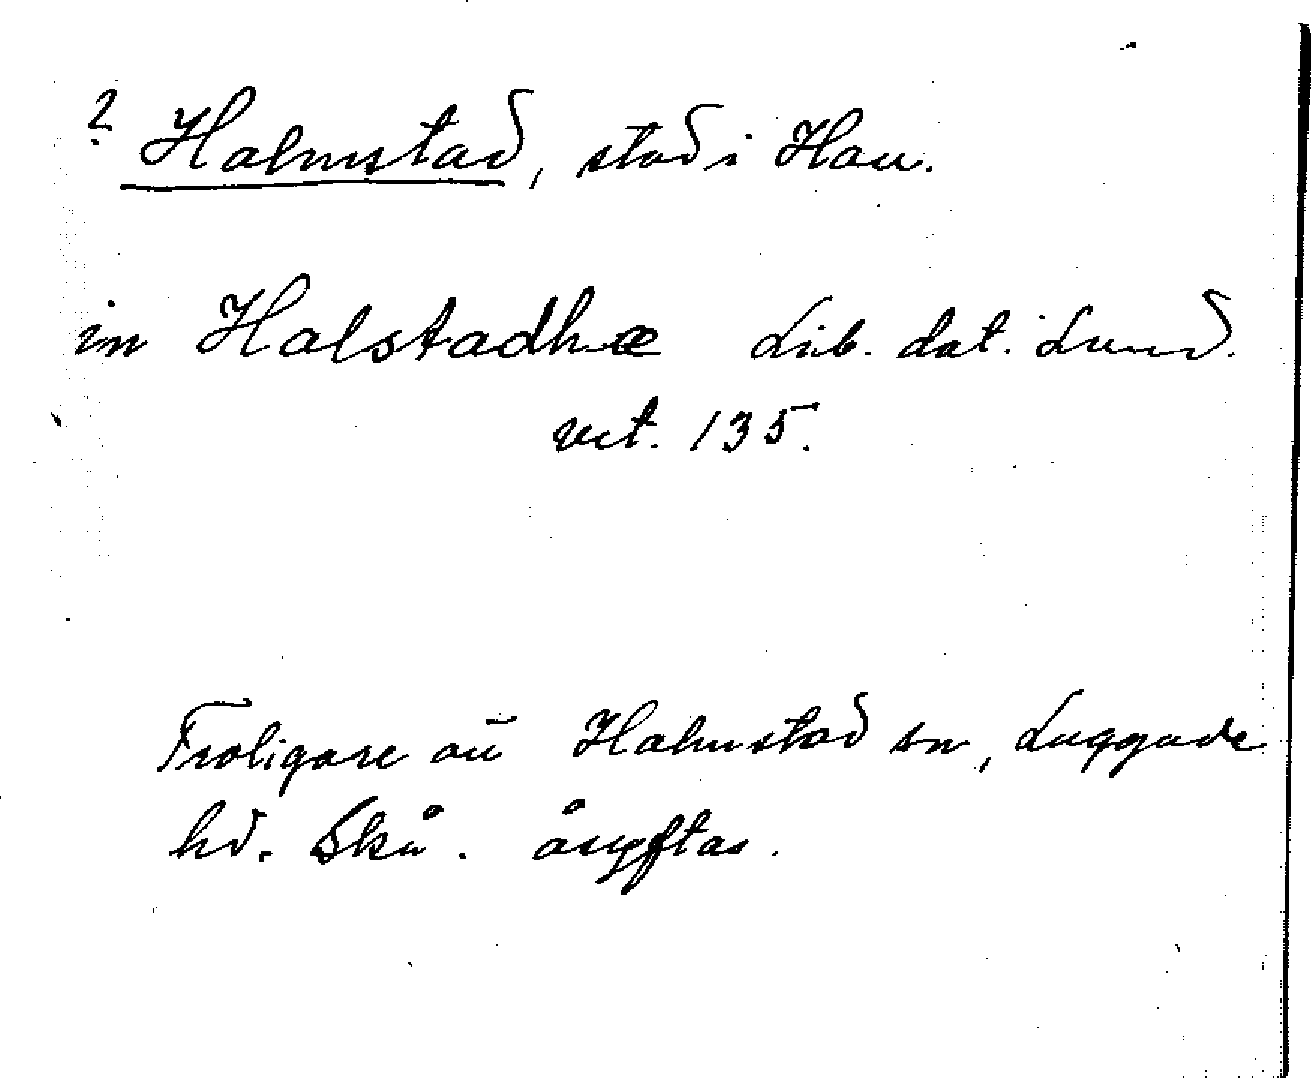 ? Halmstad, stad i Hall.
in Halstadhæ Lib. dat. Lund.
vet. 135.
Troligare att Halmstad sn, Luggude
hd. Skå. åsyftas.